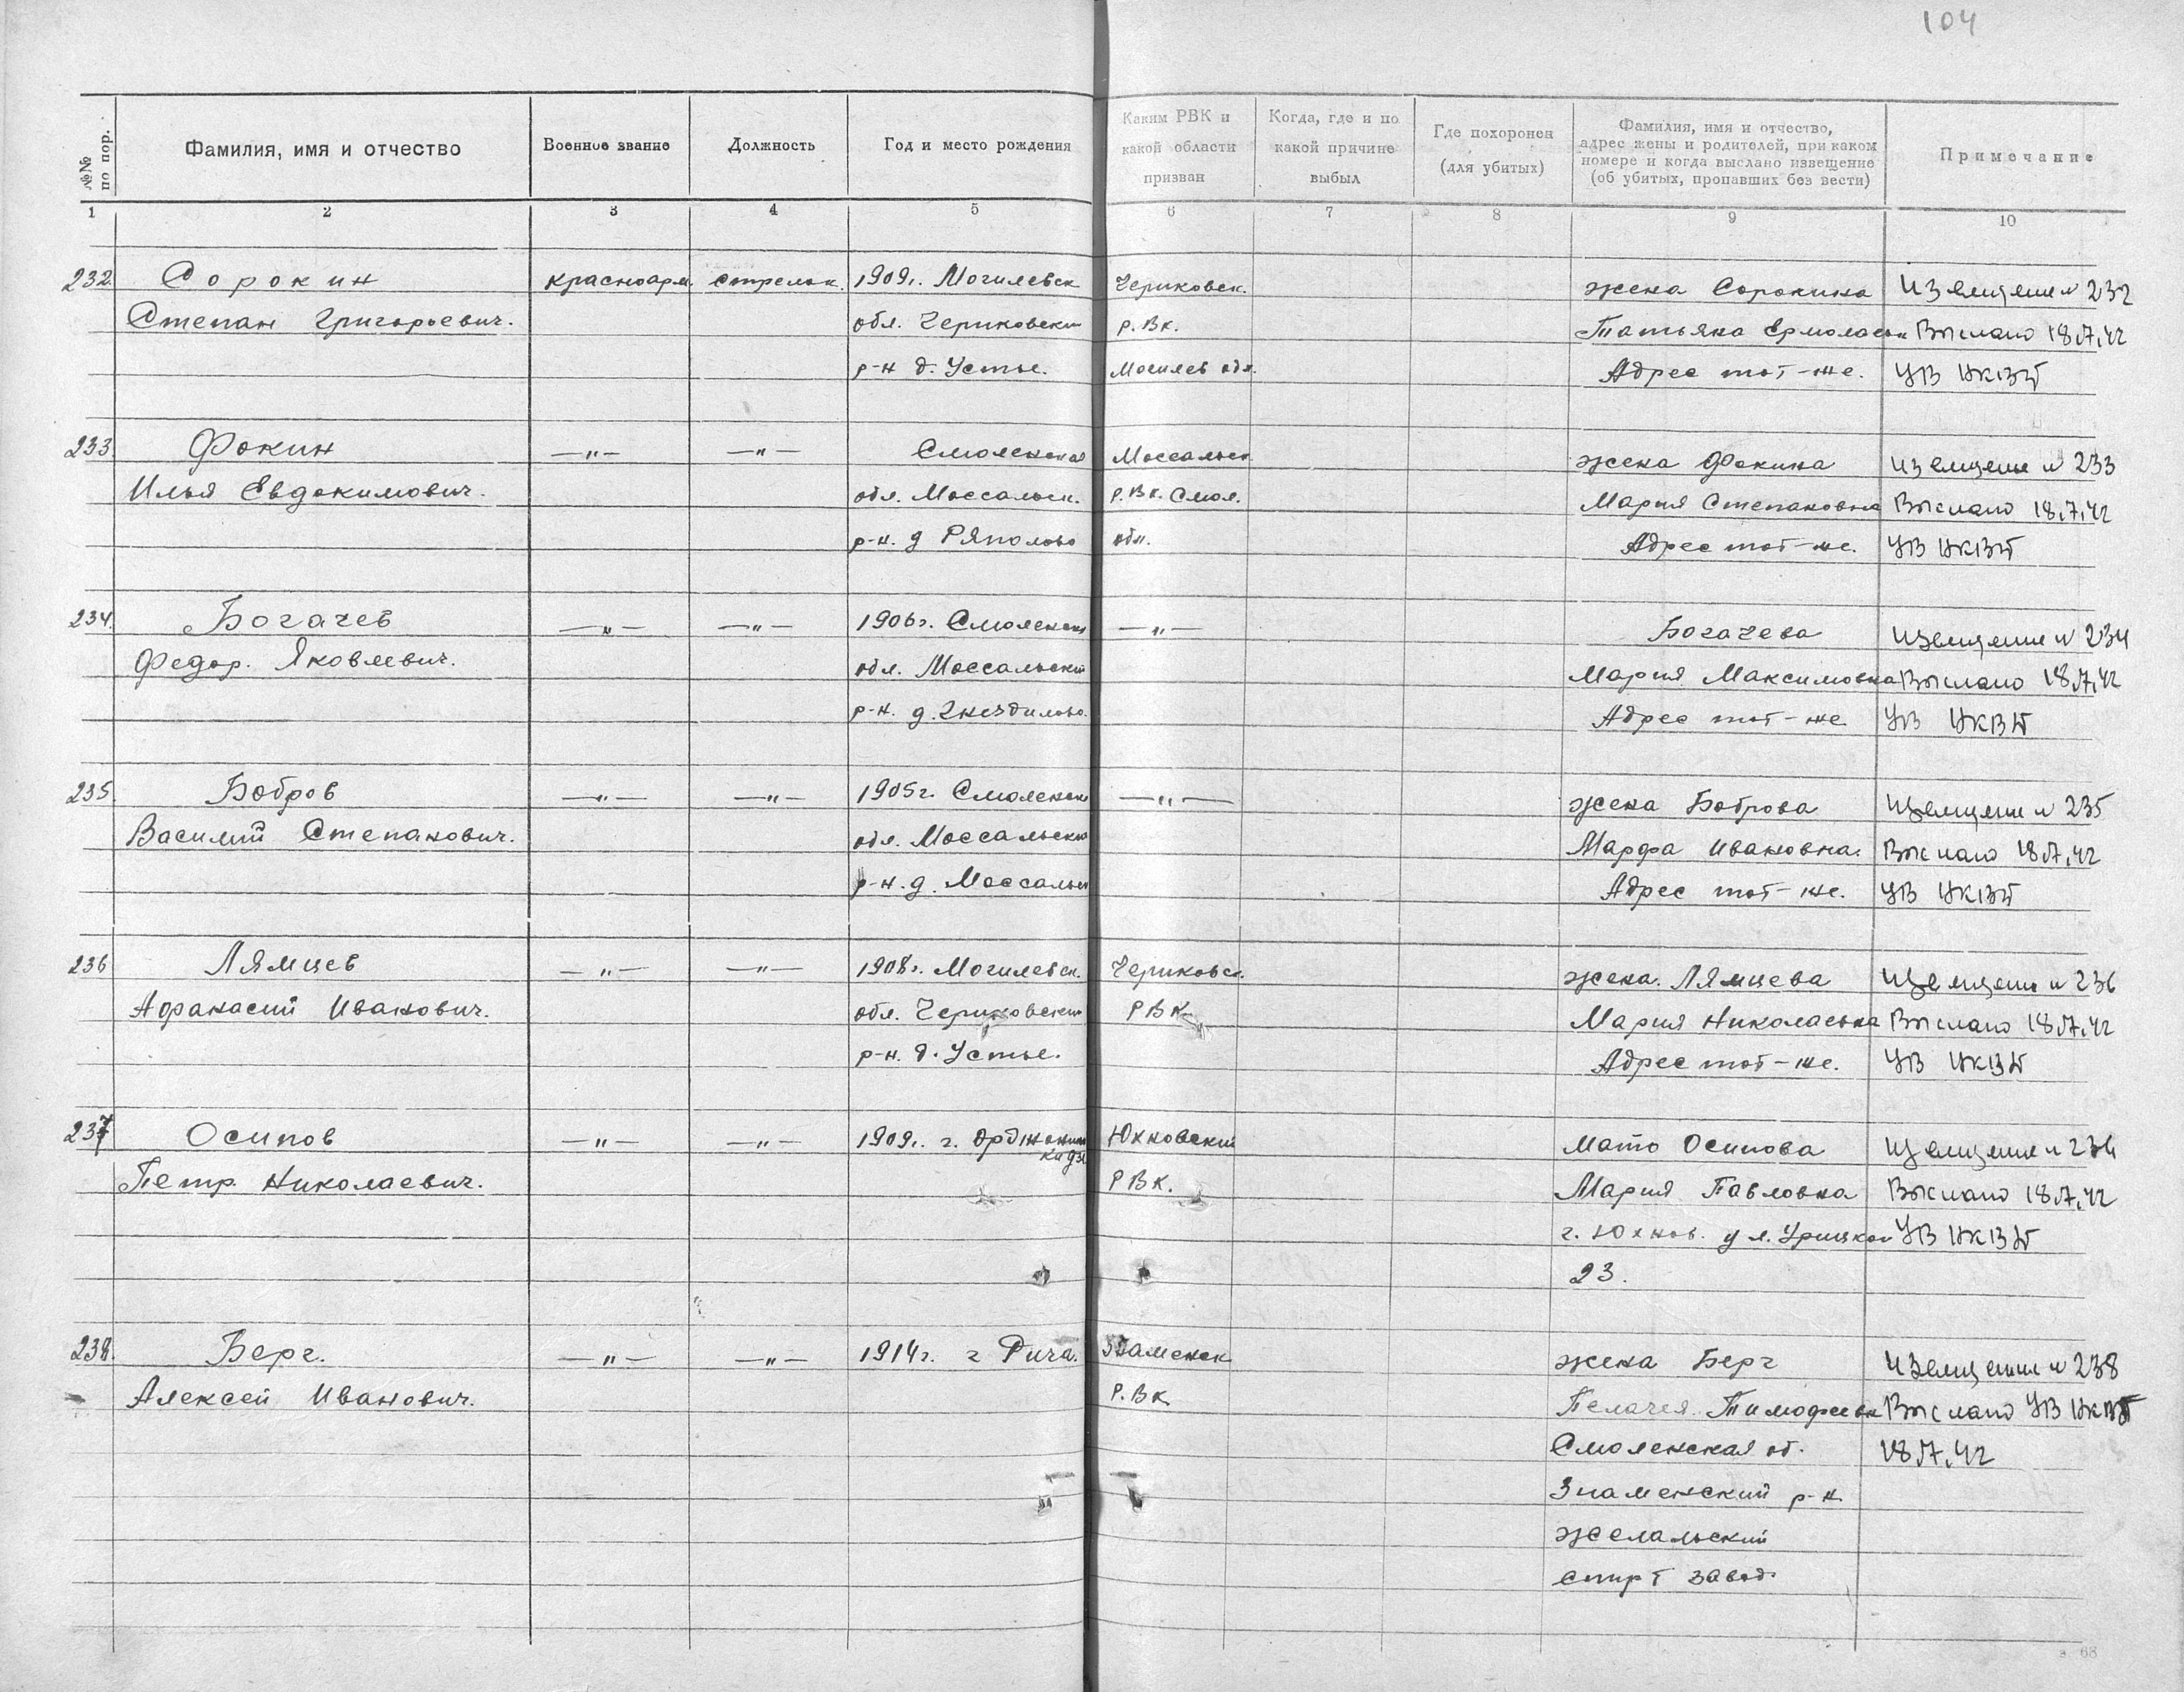 104
№№ по пор.
Фамилия, имя и отчество
Военное звание
Должность
Год и место рождения
Каким РВК и какой области призван
Когда, где и по какой причине выбыл
Где похоронен (для убитых)
Фамилия, имя и отчество, адрес жены и родителей, при каком номере и когда выслано извещение (об убитых, пропавших без вести)
Примечание
1 2 3 4 5 6 7 8 9 10
232. Сорокин красноарм. стрелок. 1909г. Могилевск Чериковск. жена Сорокина Извещение № 232
Степан Григорьевич. обл. Чериковский р.Вк. Татьяна Ермолаевн Выслано 18.7.42
р-н д. Устье. Могилев обл. Адрес тот-же. УВ НКВД
233. Фокин —"— —"— Смоленская Моссальск. жена Фокина Извещение № 233
Илья Евдокимович. обл. Моссальск. р.Вк. Смол. Мария Степановна Выслано 18.7.42
р-н. д Ряполово обл. Адрес тот-же. УВ НКВД
234. Богачев —"— —"— 1906г. Смоленск —"— Богачева Извещение № 234
Федор. Яковлевич. обл. Моссальский Мария Максимовна Выслано 18.7.42
р-н. д. Гнездилово. Адрес тот-же УВ НКВД
235. Бобров —"— —"— 1905г. Смоленск —"— жена Боброва Извещение № 235
Василий Степанович. обл. Моссальский Марфа Ивановна. Выслано 18.7.42
р-н. д. Моссальск Адрес тот-же. УВ НКВД
236 Лямцев —"— —"— 1908г. Могилевск. Чериковск. жена. Лямцева Извещение № 236
Афанасий Иванович. обл. Чериковский РВК. Мария Николаевна Выслано 18.7.42
р-н. д. Устье. Адрес тот-же. УВ НКВД
237 Осипов —"— —"— 1909г. г. Орджоникидзе Юхновский мать Осипова Извещение № 236
Петр Николаевич. РВК. Мария Павловна Выслано 18.7.42
г. Юхнов. ул. Урицкой УВ НКВД
23.
238. Берг. —"— —"— 1914г. г Рига. Знаменск жена Берг Извещение № 238
Алексей Иванович. Р.Вк Пелагея Тимофеевн Выслано УВ НКВД
Смоленская об. 18.7.42
Знаменский р-н.
Желальский
спирт завод.
з. 68